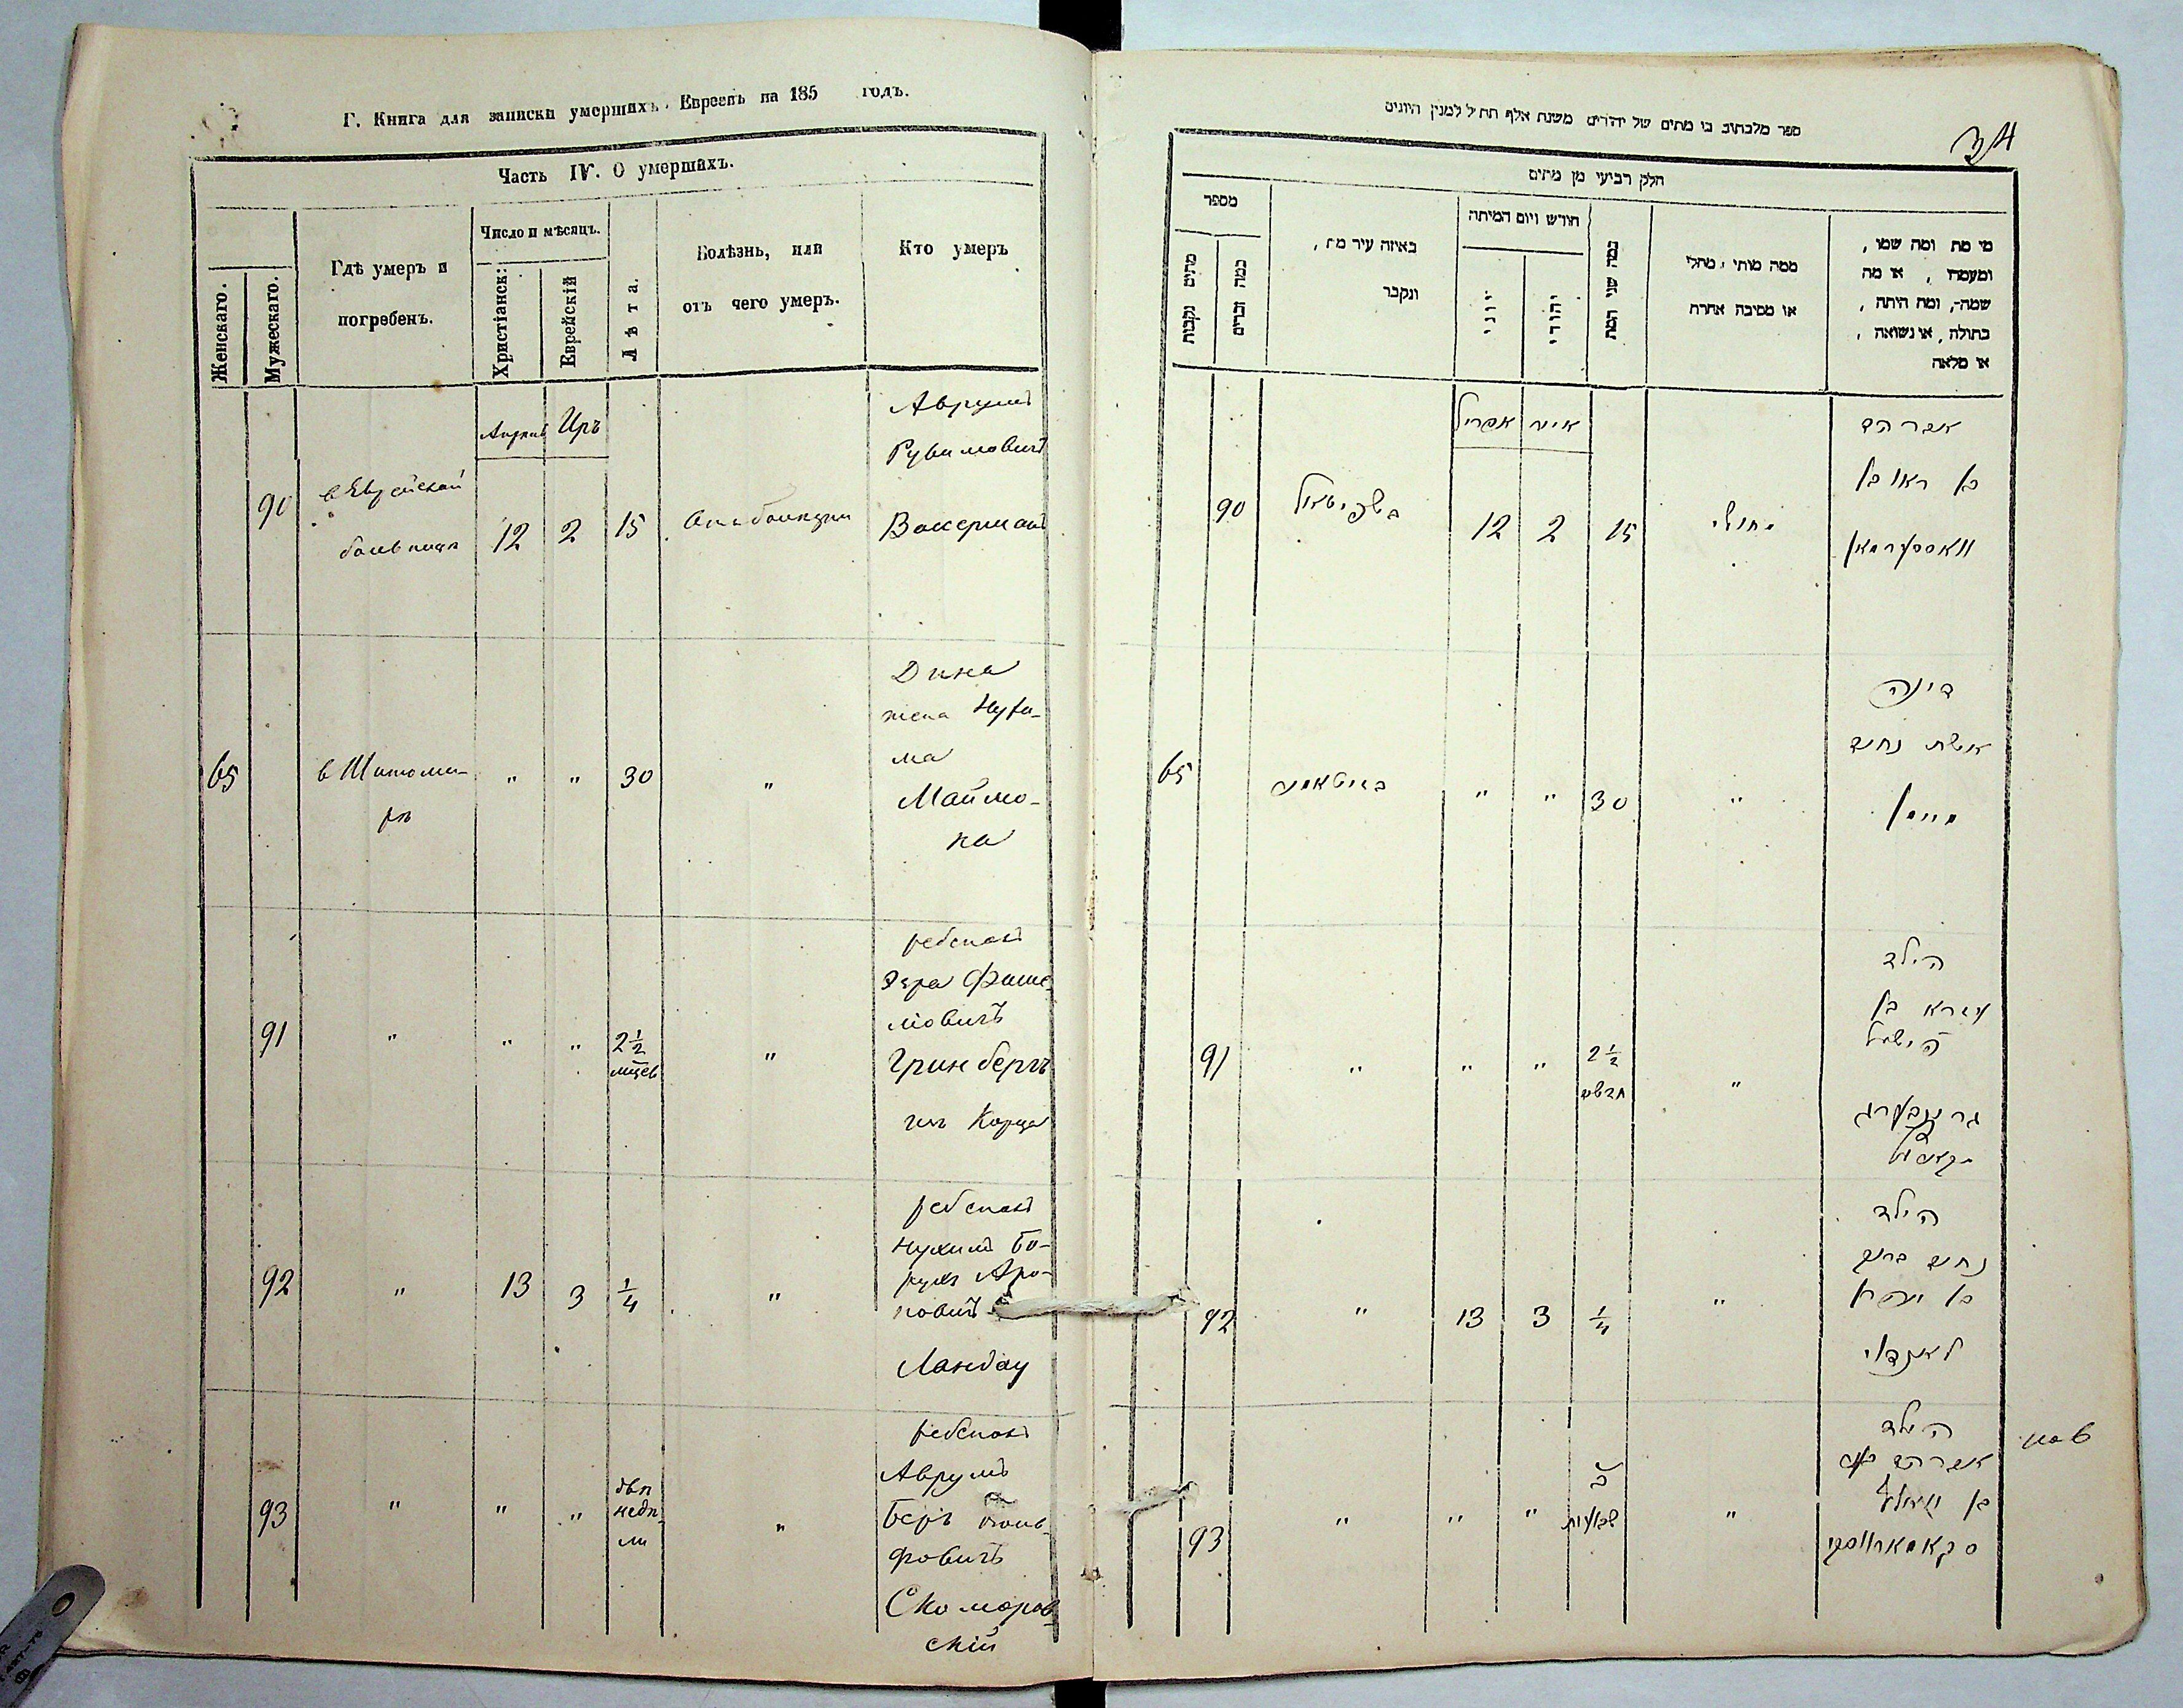 Г. Книга для записки умершихъ Евреевъ на 185 годъ.
Часть IV. О умершихъ.
Женскаго.
Мужескаго.
Гдѣ умеръ и
погребенъ.
Число и мѣсяцъ.
Христіанск:
Еврейскій
Лѣта.
Болѣзнь, или
отъ чего умеръ.
Кто умеръ
90
в Еврейской
больницѣ
Апрѣль
12
Иръ
2
15
Аврумъ
Рувимовичъ
Васерманъ
65
в Житоми-
рѣ
"
"
30
"
Дина
жена Нухи-
ма
Маймо-
на
91
"
"
"
2½
"
ребенокъ
Фише-
ловичъ
Гринбергъ
изъ Корца
92
"
13
3
¼
"
ребенокъ
Нухимъ Бо-
рухъ Аро-
новичъ
Ландау
93
"
"
"
двѣ
недѣ-
ли
"
ребенокъ
Аврумъ
Беръ Воль-
фовичъ
Скоморов-
скій
ספר מלכתוב בו מתים של יהודים משנת אלף תת״ל למנין היונים
34
חלק רביעי מן מתים
מספר
מתים נקבות
כמה זכרים
באיזה עיר מת,
ונקבר
חודש ויום המיתה
יוני
יהודי
כמה שני המת
ממה מותו, מחלי
או מסיבה אחרת
מי מת ומה שמו,
ומעמדו, או מה
שמה, ומה היתה,
בתולה, או נשואה,
או מלאה
90
בשפיטאל
אפריל
12
אייר
2
15
מחולי
אברהם
בן ראובן
וואססערמאן
65
"
"
30
"
דינה
אשת נחום
מיימון
91
"
"
"
2½
חדשים
"
הילד
עזרא בן
פישל
גרינבערג
92
"
13
3
¼
"
הילד
נחום ברוך
בן אהרן
לאנדוי
93
"
"
"
ב׳
שבועות
"
הילד
אברהם בער
בן וואלף
סקאמאראווסקי